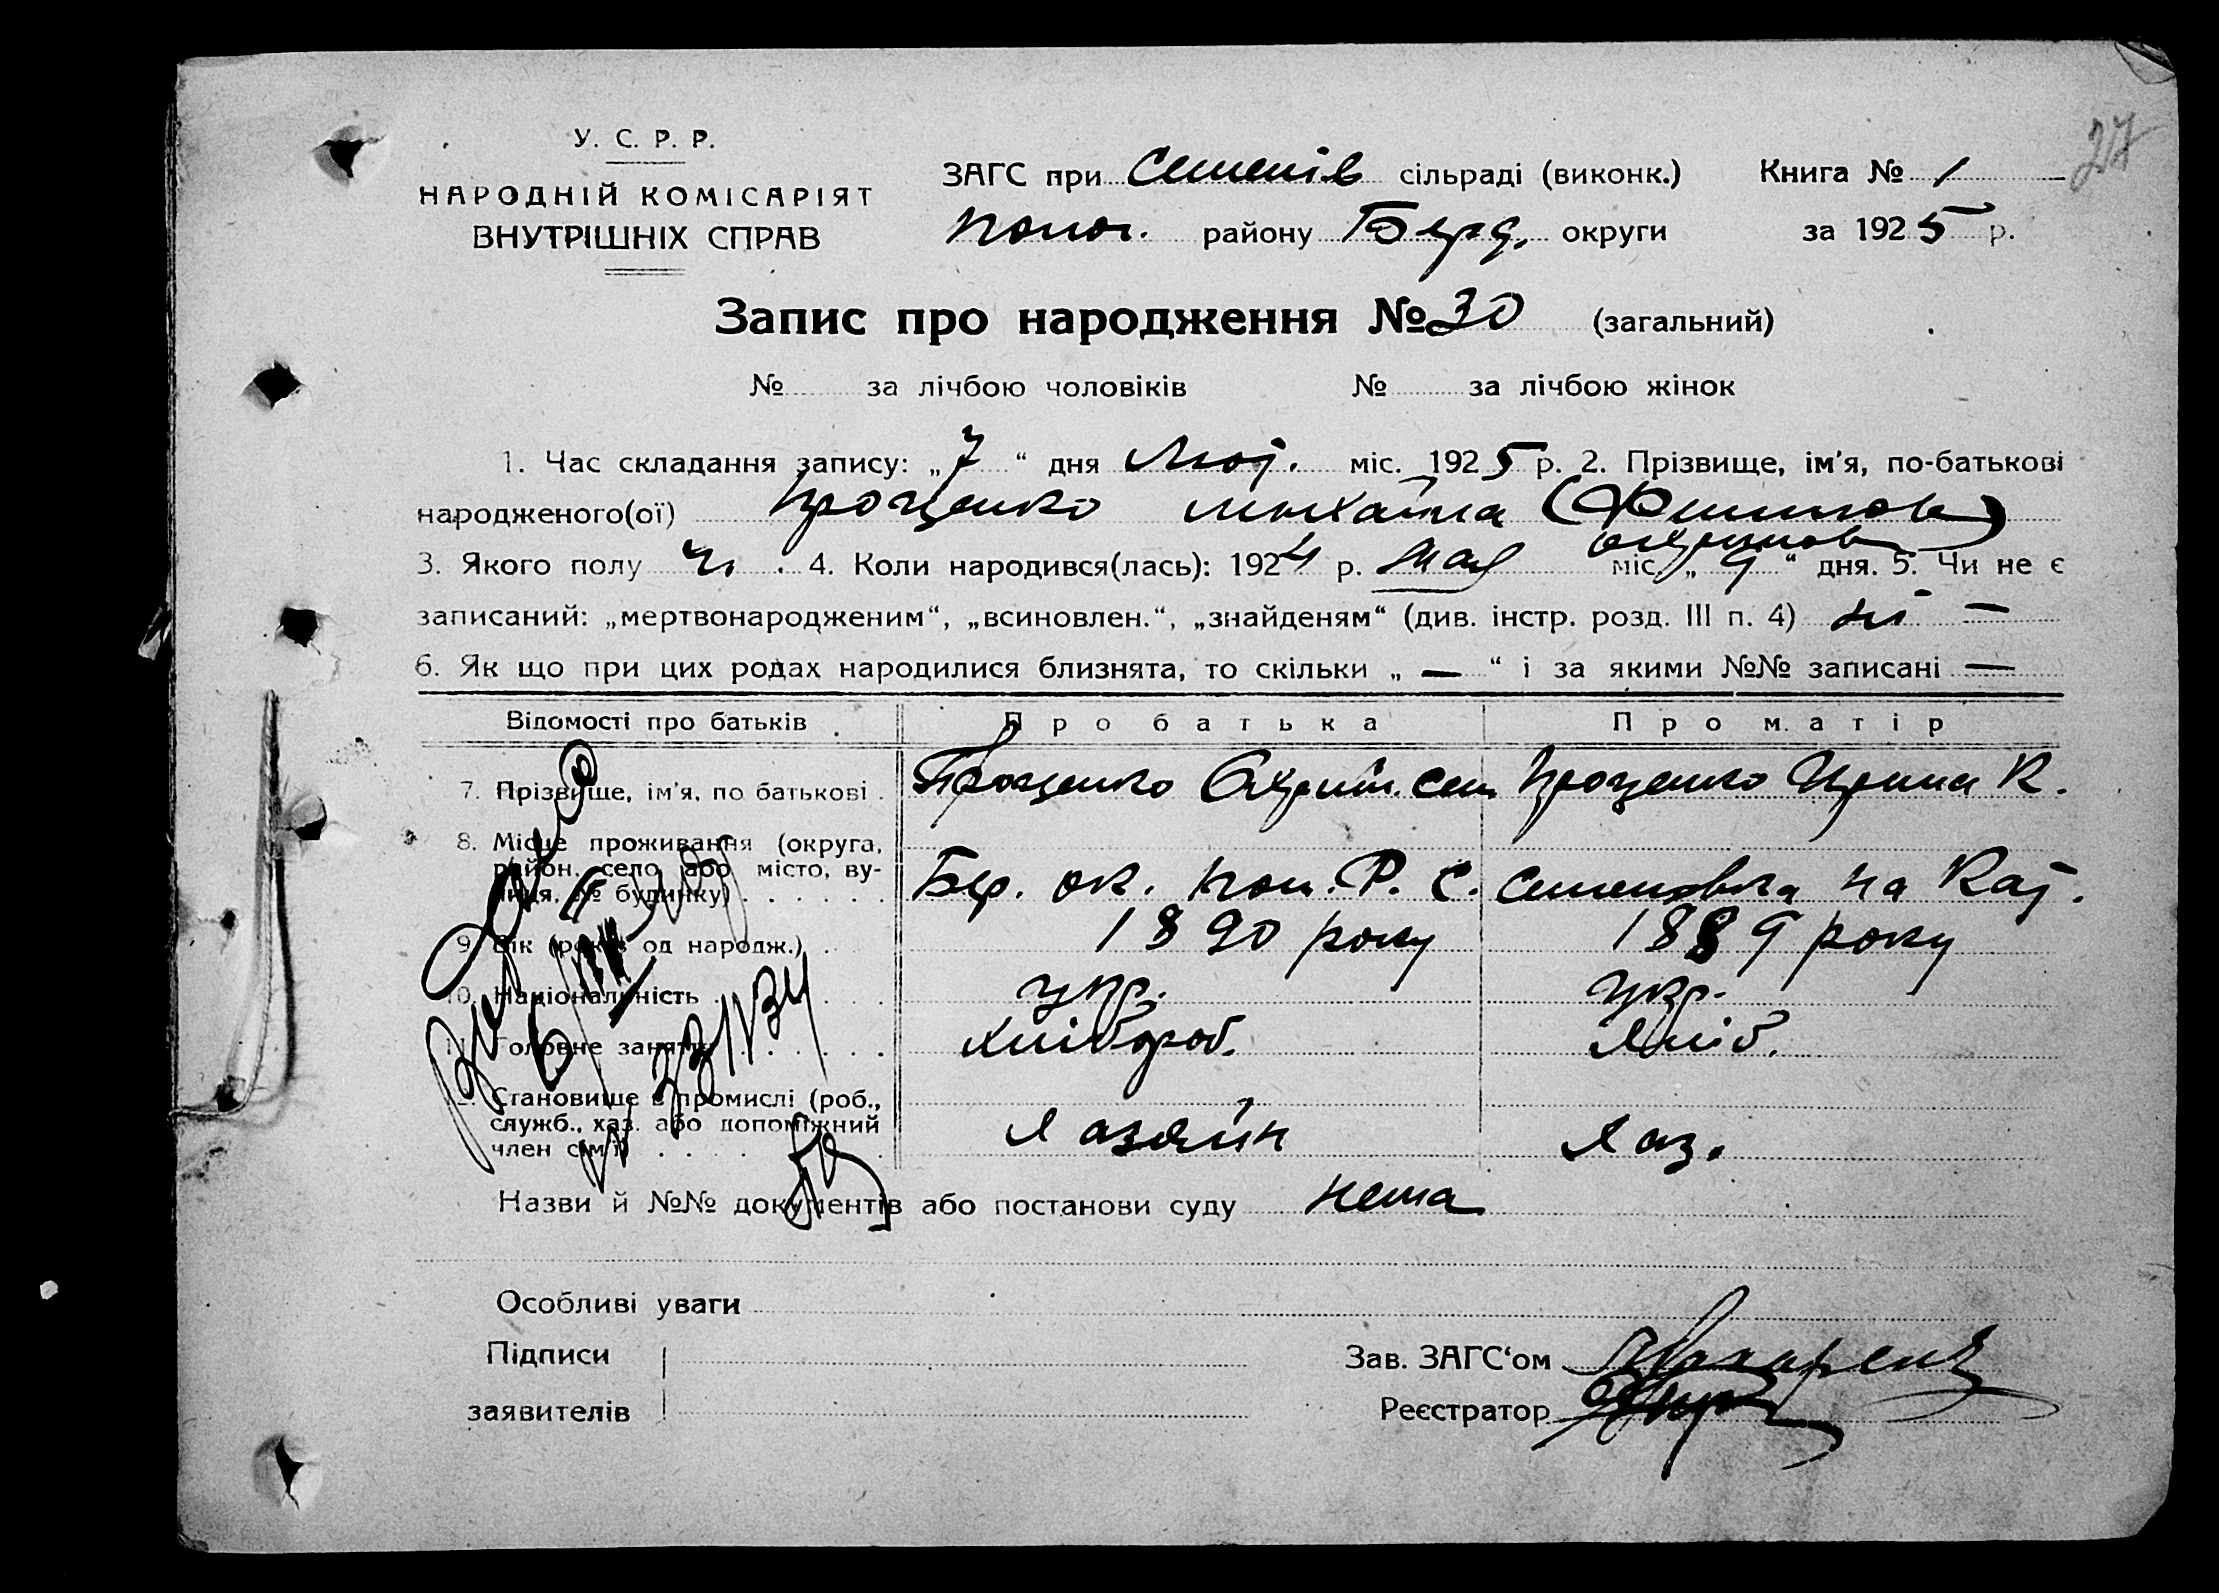 27
У. С. Р. Р.
НАРОДНІЙ КОМІСАРІЯТ
ВНУТРІШНІХ СПРАВ
ЗАГС при Семенів сільраді (виконк.) Книга № 1
Полог. району Берд. округи за 1925 р.
Запис про народження № 30 (загальний)
№ за лічбою чоловіків № за лічбою жінок
1. Час складання запису: „7“ дня Лют. міс. 1925 р. 2. Прізвище, ім'я, по-батькові
народженого(ої) Проценко Михайла
3. Якого полу ч. 4. Коли народився(лась): 1924 р. мая міс. „9“ дня. 5. Чи не є
записаний: „мертвонародженим“, „всиновлен.“, „знайденям“ (див. інстр. розд. III п. 4) ні —
6. Як що при цих родах народилися близнята, то скільки „ — “ і за якими №№ записані —
Відомості про батьків Про батька Про матір
7. Прізвище, ім'я, по батькові . Проценко Охрим. Сем Проценко Ирина К.
8. Місце проживання (округа,
район, село або місто, ву-
лиця, № будинку) . . . . . . Бер. ок. Пол. Р. С. Семеновка на Кат.
9. Вік (років од народж.) . . 1890 року 1889 року
10. Національність . . . . укр. укр.
11. Головне заняття . . . . . Хлібороб. Хліб.
12. Становище в промислі (роб.,
служб., хаз. або допоміжний
член сім'ї) . . . . . Хазяїн Хаз.
Назви й №№ документів або постанови суду нема
Особливі уваги
Підписи
заявителів
Зав. ЗАГС‘ом
Реєстратор